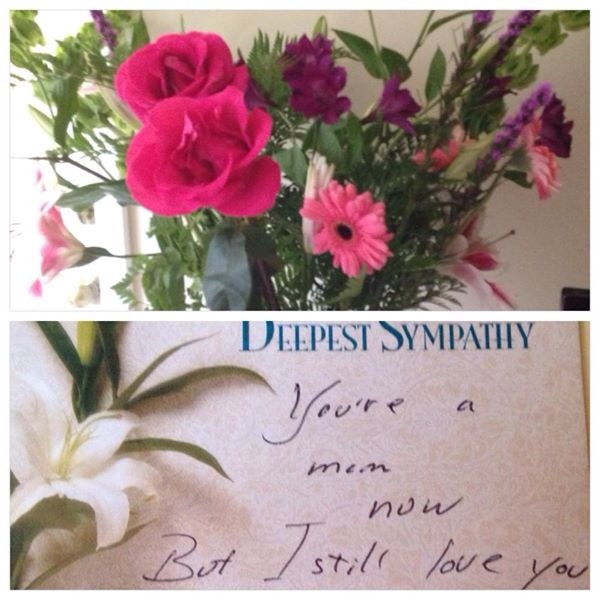 DEEPEST SYMPATHY
You're a
mom
now
But I still love you